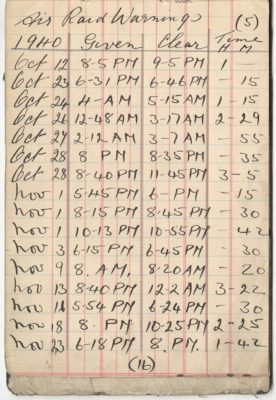 Air Raid Warnings (5)
1940 Given Clear Time
H M
Oct 12 8-5 PM 9-5 PM 1 —
Oct 23 6-31 PM 6-46 PM - 15
Oct 24 4- AM 5-15 AM 1-15
Oct 26 12-48 AM 3-17 AM 2-29
Oct 27 2-12 AM 3-7 AM - 55
Oct 28 8 PM 8-35 PM - 35
Oct 28 8-40 PM 11-45 PM 3-5
Nov 1 5-45 PM 6-PM - 15
Nov 1 8-15 PM 8-45 PM - 30
Nov 1 10-13 PM 10-55 PM - 42
Nov 3 6-15 PM 6-45 PM - 30
Nov 9 8. A.M. 8-20 AM - 20
Nov 13 8-40 PM 12-2 AM 3-22
Nov 5-54 PM 6-24 PM - 30
Nov 18 8. PM 10-25 PM 2-25
Nov 23 6-18 PM 8. PM. 1-42
(16)